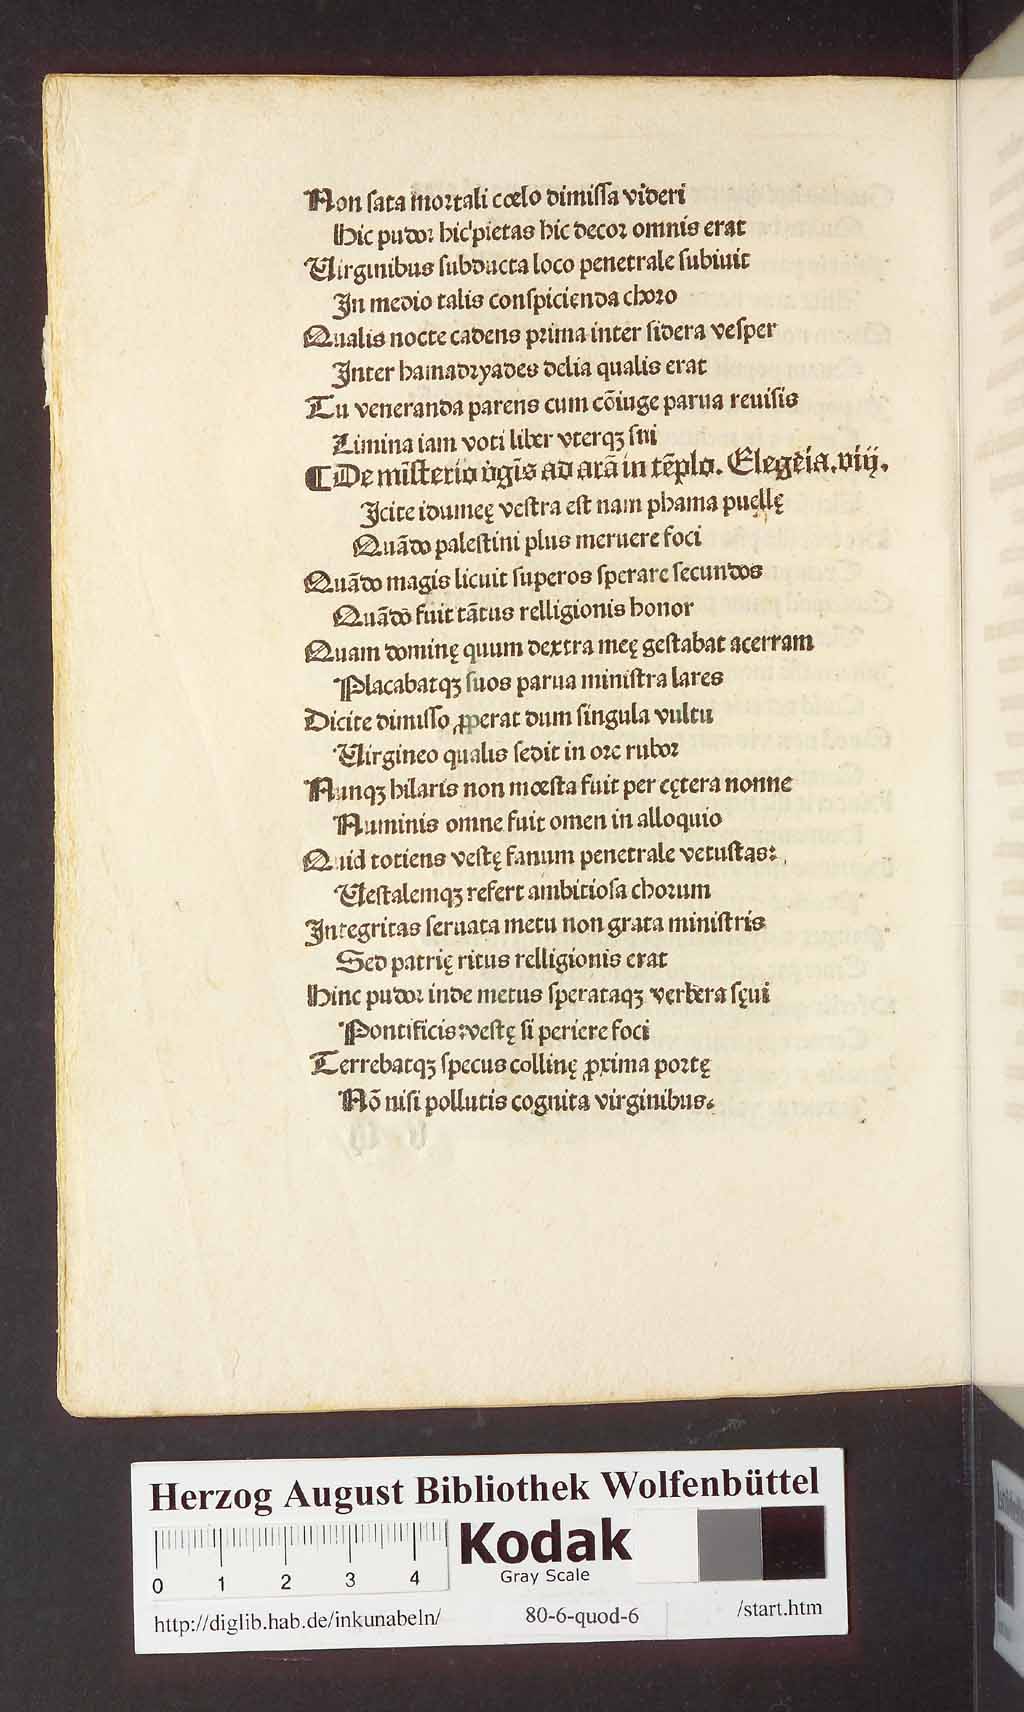 Non sata mortali cœlo dimissa videri
Hic pudor hic pietas hic decor omnis erat
Virginibus subducta loco penetrale subiuit
In medio talis conspicienda choro
Qualis nocte cadens prima inter sidera vesper
Inter hamadryades delia qualis erat
Tu veneranda parens cum cōiuge parua reuisis
Limina iam voti liber vterqꝫ sui
¶De mīsterio v̇gīs ad arā in tēplo. Elegeia.viij.
Icite idumeę vestra est nam phama puellę
Quādo palestini plus meruere foci
Quādo magis licuit superos sperare secundos
Quādo fuit tātus relligionis honor
Quam dominę quum dextra meę gestabat acerram
Placabatqꝫ suos parua ministra lares
Dicite dimisso ꝓperat dum singula vultu
Virgineo qualis sedit in ore rubor
Nunqꝫ hilaris non mœsta fuit per cętera nonne
Numinis omne fuit omen in alloquio
Quid totiens vestę fanum penetrale vetustas:
Vestalemqꝫ refert ambitiosa chorum
Integritas seruata metu non grata ministris
Sed patrię ritus relligionis erat
Hinc pudor inde metus sperataqꝫ verbera sęui
Pontificis: vestę si periere foci
Terrebatqꝫ specus collinę ꝓxima portę
Nō nisi pollutis cognita virginibus.
Herzog August Bibliothek Wolfenbüttel
0 1 2 3 4
Kodak
Gray Scale
http://diglib.hab.de/inkunabeln/ 80-6-quod-6 /start.htm